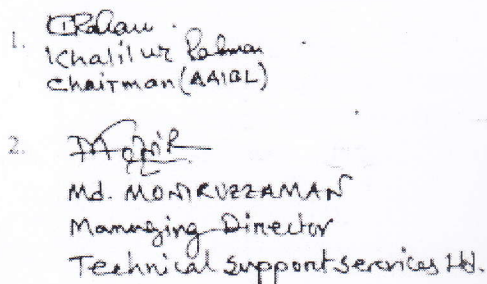 1. Rahman
Khalilur Rahman
Chairman (AAIBL)
2. Monir
Md. MONIRUZZAMAN
Managing Director
Technical Support Services Ltd.